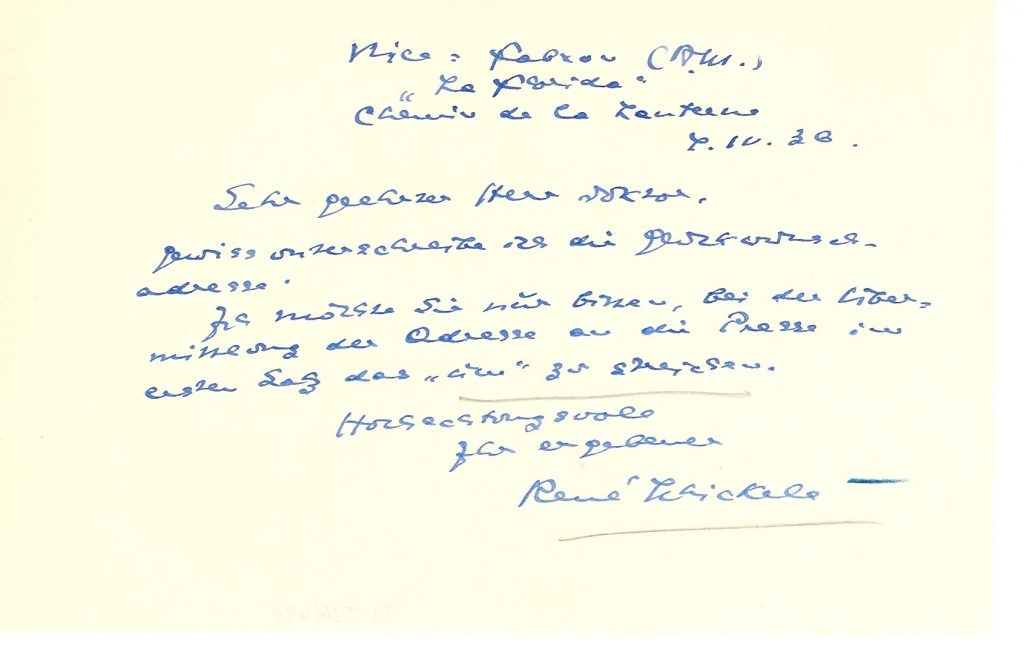 Nice = Fabron (A.M.)
"La Florida"
Chemin de la Lanterne
7. IV. 36.
Sehr geehrter Herr Doktor,
gewiss unterschreibe ich die Glückwunsch-
adresse.
Ich möchte Sie nur bitten, bei der Über=
mittlung der Adresse an die Presse im
ersten Satz das „im“ zu streichen.
Hochachtungsvoll
Ihr ergebener
René Schickele